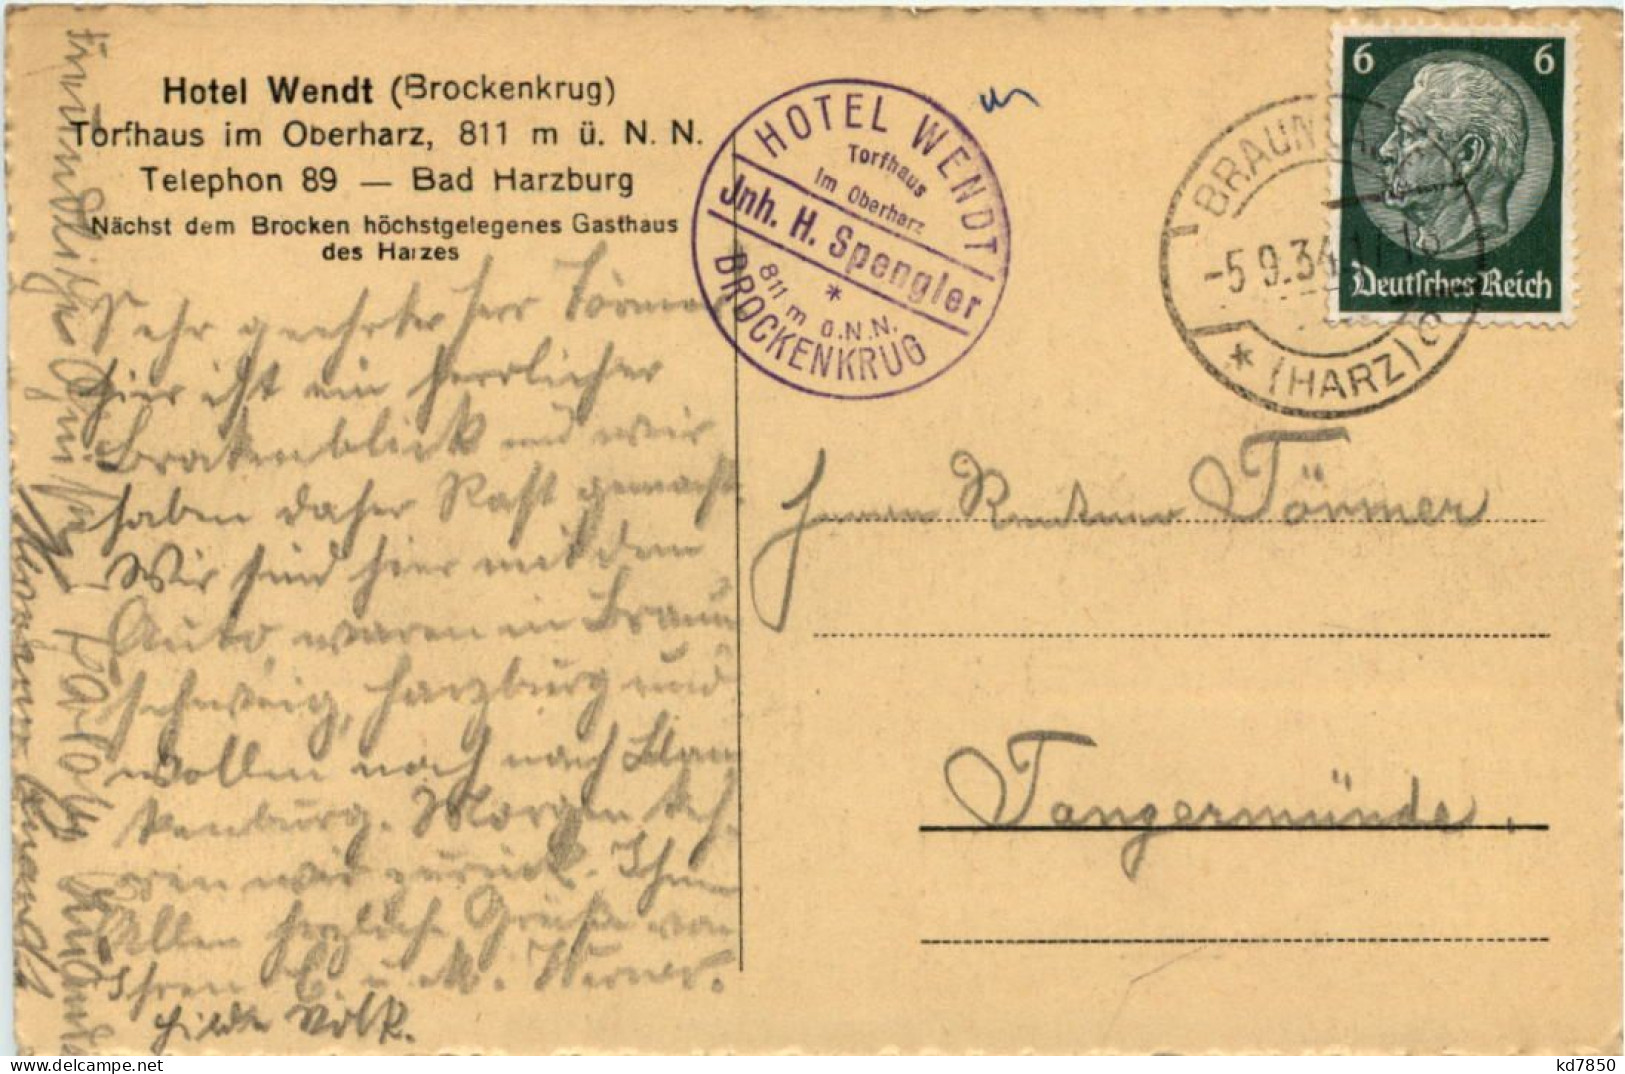 Hotel Wendt (Brockenkrug)
Torfhaus im Oberharz, 811 m ü. N. N.
Telephon 89 — Bad Harzburg
Nächst dem Brocken höchstgelegenes Gasthaus
des Harzes
HOTEL WENDT
Torfhaus
im Oberharz
Jnh. H. Spengler
*
811 m ü.N.N.
BROCKENKRUG
6 6
Deutsches Reich
BRAUNLAGE
-5.9.34.
* (HARZ) c
Sehr geehrter Herr Törmer
Hier ist ein herrlicher
Brockenblick und wir
haben daher Rast gemacht.
Wir sind hier mit dem
Auto, waren in Braun
schweig, Harzburg und
wollen noch nach Blan
kenburg. Morgen keh-
ren wir zurück. Ihnen
Allen herzliche Grüße von
Ihren E. u. M. Werner.
Hilde Volk.
Freundliche Grüße
Herrn Rentner Törmer
Tangermünde.
kd7850